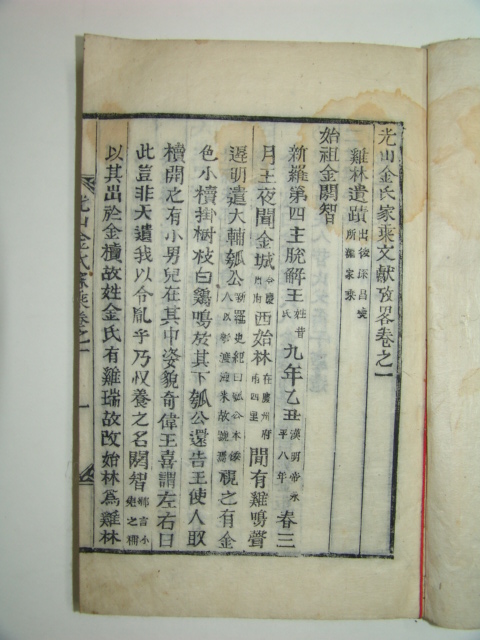 光山金氏家乘文獻攷畧卷之一
雞林遺蹟 出後孫昌 所在家乘
始祖金閼智
新羅第四主脫解王 姓昔氏 九年乙丑 漢明帝永平八年 春三
月王夜聞金城 西始林 在慶州府南四里 間有雞鳴聲
遲明遣大輔瓠公 視之有金
色小櫝掛樹枝白鷄鳴於其下瓠公還告王使人取
櫝開之有小男兒在其中姿貌奇偉王喜謂左右曰
此豈非天遺我以令胤乎乃収養之名閼智 鄕言小兒之稱
以其出於金櫝故姓金氏有雞瑞故改始林爲雞林
光山金氏家乘卷之一
一